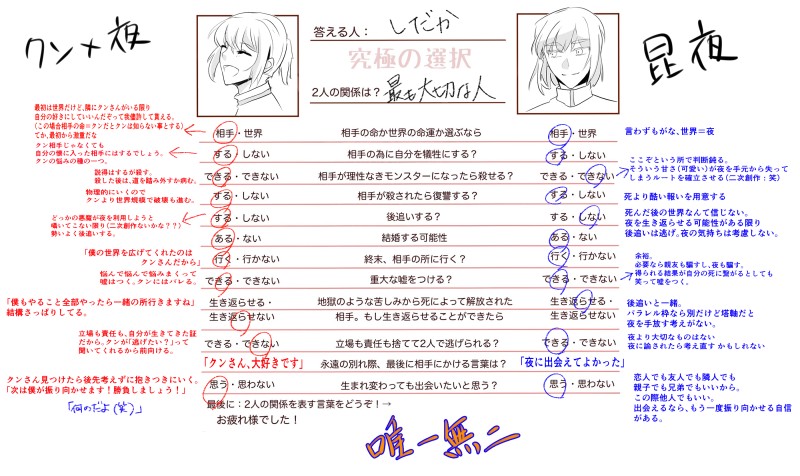 クン×夜
昆夜
答える人： しだか
究極の選択
2人の関係は？ 最も大切な人
最初は世界だけど、隣にクンさんがいる限り
自分の好きにしていいんだぞって我儘許して貰える。
(この場合相手の命＝クンだとクンは知らない事とする)
てか、最初から激重だな
相手・世界
相手の命か世界の命運か選ぶなら
相手・世界
言わずもがな、世界＝夜
クン相手じゃなくても
自分の懐に入った相手にはするでしょう。
クンの悩みの種の一つ。
する・しない
相手の為に自分を犠牲にする？
する・しない
ここぞという所で判断鈍る。
そういう甘さ(可愛い)が夜を手元から失って
しまうルートを確立させる(二次創作：笑)
説得はするが殺す。
殺した後は、道を踏み外すか病む。
できる・できない
相手が理性なきモンスターになったら殺せる？
できる・できない
物理的にいくので
クンより世界規模で破壊も進む。
する・しない
相手が殺されたら復讐する？
する・しない
死より酷い報いを用意する
どっかの悪魔が夜を利用しようと
囁いてこない限り(二次創作ないかな？？)
勢いよく後追いする。
する・しない
後追いする？
する・しない
死んだ後の世界なんて信じない。
夜を生き返らせる可能性がある限り
後追いは逃げ。夜の気持ちは考慮しない。
ある・ない
結婚する可能性
ある・ない
「僕の世界を広げてくれたのは
クンさんだから」
行く・行かない
終末、相手の所に行く？
行く・行かない
悩んで悩んで悩みまくって
嘘はつく。クンにはバレる。
できる・できない
重大な嘘をつける？
できる・できない
余裕。
必要なら親友も騙すし、夜も騙す。
得られる結果が自分の死に繋がるとしても
笑って嘘をつく。
「僕もやること全部やったら一緒の所行きますね」
結構さっぱりしてる。
生き返らせる・
生き返らせない
地獄のような苦しみから死によって解放された
相手。もし生き返らせることができたら
生き返らせる・
生き返らせない
後追いと一緒。
パラレル枠なら別だけど塔軸だと
夜を手放す考えがない。
立場も責任も、自分が生きてきた証
だから。クンが「逃げたい？」って
聞いてくれるから前向ける。
できる・できない
立場も責任も捨てて2人で逃げられる？
できる・できない
夜より大切なものはない
夜に諭されたら考え直すかもしれない
「クンさん、大好きです」
永遠の別れ際、最後に相手にかける言葉は？
「夜に出会えてよかった」
クンさん見つけたら後先考えずに抱きつきにいく。
「次は僕が振り向かせます！勝負しましょう！」
「何のだよ(笑)」
思う・思わない
生まれ変わっても出会いたいと思う？
思う・思わない
恋人でも友人でも隣人でも
親子でも兄弟でもいいから。
この際他人でもいい。
出会えるなら、もう一度振り向かせる自信
がある。
最後に：2人の関係を表す言葉をどうぞ！→
お疲れ様でした！
唯一無二